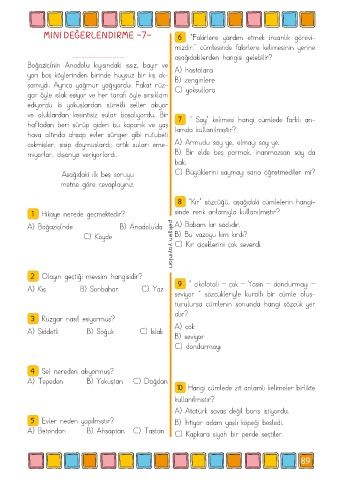 MİNİ DEĞERLENDİRME -7-
Boğaziçi'nin Anadolu kıyısındaki ıssız, bayır ve
yan boş köylerinden birinde huysuz bir kış ak-
şamıydı. Ayrıca yağmur yağıyordu. Fakat rüz-
gar öyle ıslak esiyor ve her tarafı öyle sırsıklam
ediyordu ki yokuşlardan sürekli seller akıyor
ve oluklardan kesintisiz sular boşalıyordu. Bir
haftadan beri sürüp giden bu kapanık ve yaş
hava altında ahşap evler sünger gibi rutubeti
çekmişler, şişip doymuşlardı; artık suları eme-
miyorlar, dışarıya veriyorlardı.
Aşağıdaki ilk beş soruyu
metne göre cevaplayınız.
1 Hikaye nerede geçmektedir?
A) Boğaziçi'nde B) Anadolu'da
C) Köyde
2 Olayın geçtiği mevsim hangisidir?
A) Kış B) Sonbahar C) Yaz
3 Rüzgar nasıl esiyormuş?
A) Şiddetli B) Soğuk C) Islak
4 Sel nereden akıyormuş?
A) Tepeden B) Yokuştan C) Dağdan
5 Evler neden yapılmıştır?
A) Betondan B) Ahşaptan C) Taştan
6 "Fakirlere yardım etmek insanlık görevi-
mizdir." cümlesinde fakirlere kelimesinin yerine
aşağıdakilerden hangisi gelebilir?
A) hastalara
B) zenginlere
C) yoksullara
7 " Say" kelimesi hangi cümlede farklı an-
lamda kullanılmıştır?
A) Armudu say ye, elmayı say ye.
B) Bir elde beş parmak, inanmazsan say da
bak.
C) Büyüklerini saymayı sana öğretmediler mi?
8 "Kır" sözcüğü, aşağıdaki cümlelerin hangi-
sinde renk anlamıyla kullanılmıştır?
A) Babam kır saçlıdır.
B) Bu vazoyu kim kırdı?
C) Kır çiçeklerini çok severdi.
9 " çikolatalı – çok – Yasin – dondurmayı –
seviyor " sözcükleriyle kurallı bir cümle oluş-
turulursa cümlenin sonunda hangi sözcük yer
alır?
A) çok
B) seviyor
C) dondurmayı
10 Hangi cümlede zıt anlamlı kelimeler birlikte
kullanılmıştır?
A) Atatürk savaş değil barış istiyordu.
B) İhtiyar adam yaşlı köpeği besledi.
C) Kapkara siyah bir perde seçtiler.
89